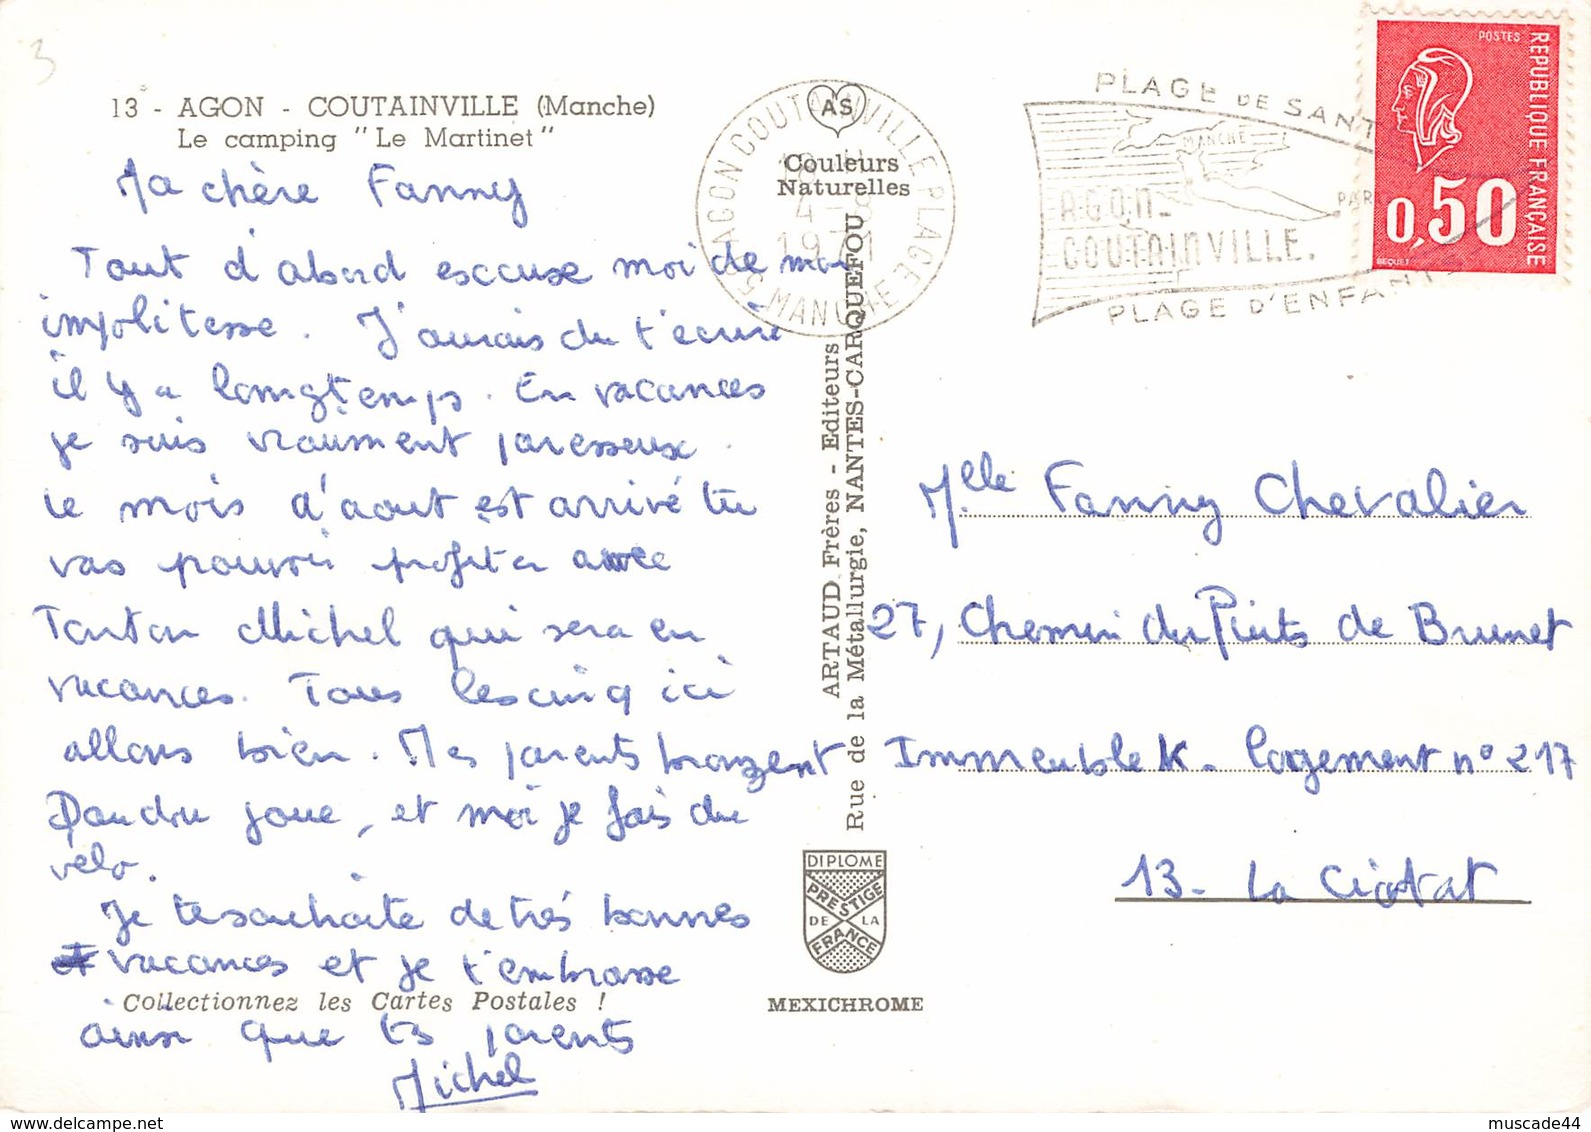 3
13 - AGON - COUTAINVILLE (Manche)
Le camping "Le Martinet"
Ma chère Fanny
Tout d'abord esccuse moi de mon
impolitesse. J'aurais du t'écrire
il y a longtemps. En vacances
je suis vraiment paresseux.
Le mois d'aout est arrivé tu
vas pouvoir profiter avec
Tonton Michel qui sera en
vacances. Tous les cinq ici
allons bien. Mes parents bronzent
joue, et moi je fais du
vélo.
Je te souhaite de très bonnes
vacances et je t'embrasse
Collectionnez les Cartes Postales !
ainsi que tes parents
Michel
AS
Couleurs
Naturelles
50 AGON COUTAINVILLE PLAGE
MANCHE
ARTAUD Frères - Editeurs
Rue de la Métallurgie, NANTES-CARQUEFOU
DIPLOME
PRESTIGE
DE LA
FRANCE
MEXICHROME
PLAGE DE SANT
MANCHE
AGON-
COUTAINVILLE.
PAR
PLAGE D'ENFANTS
POSTES
REPUBLIQUE FRANÇAISE
0,50
BEQUET
Melle Fanny Chevalier
27, Chemin du Puits de Brunet
Immeuble K - logement n° 217
13 - La Ciotat
www.delcampe.net
muscade44